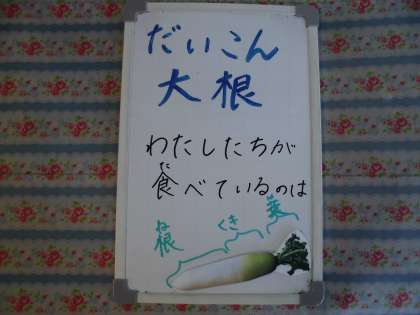 だいこん
大根
わたしたちが
た
食べているのは
ね
根
くき
葉